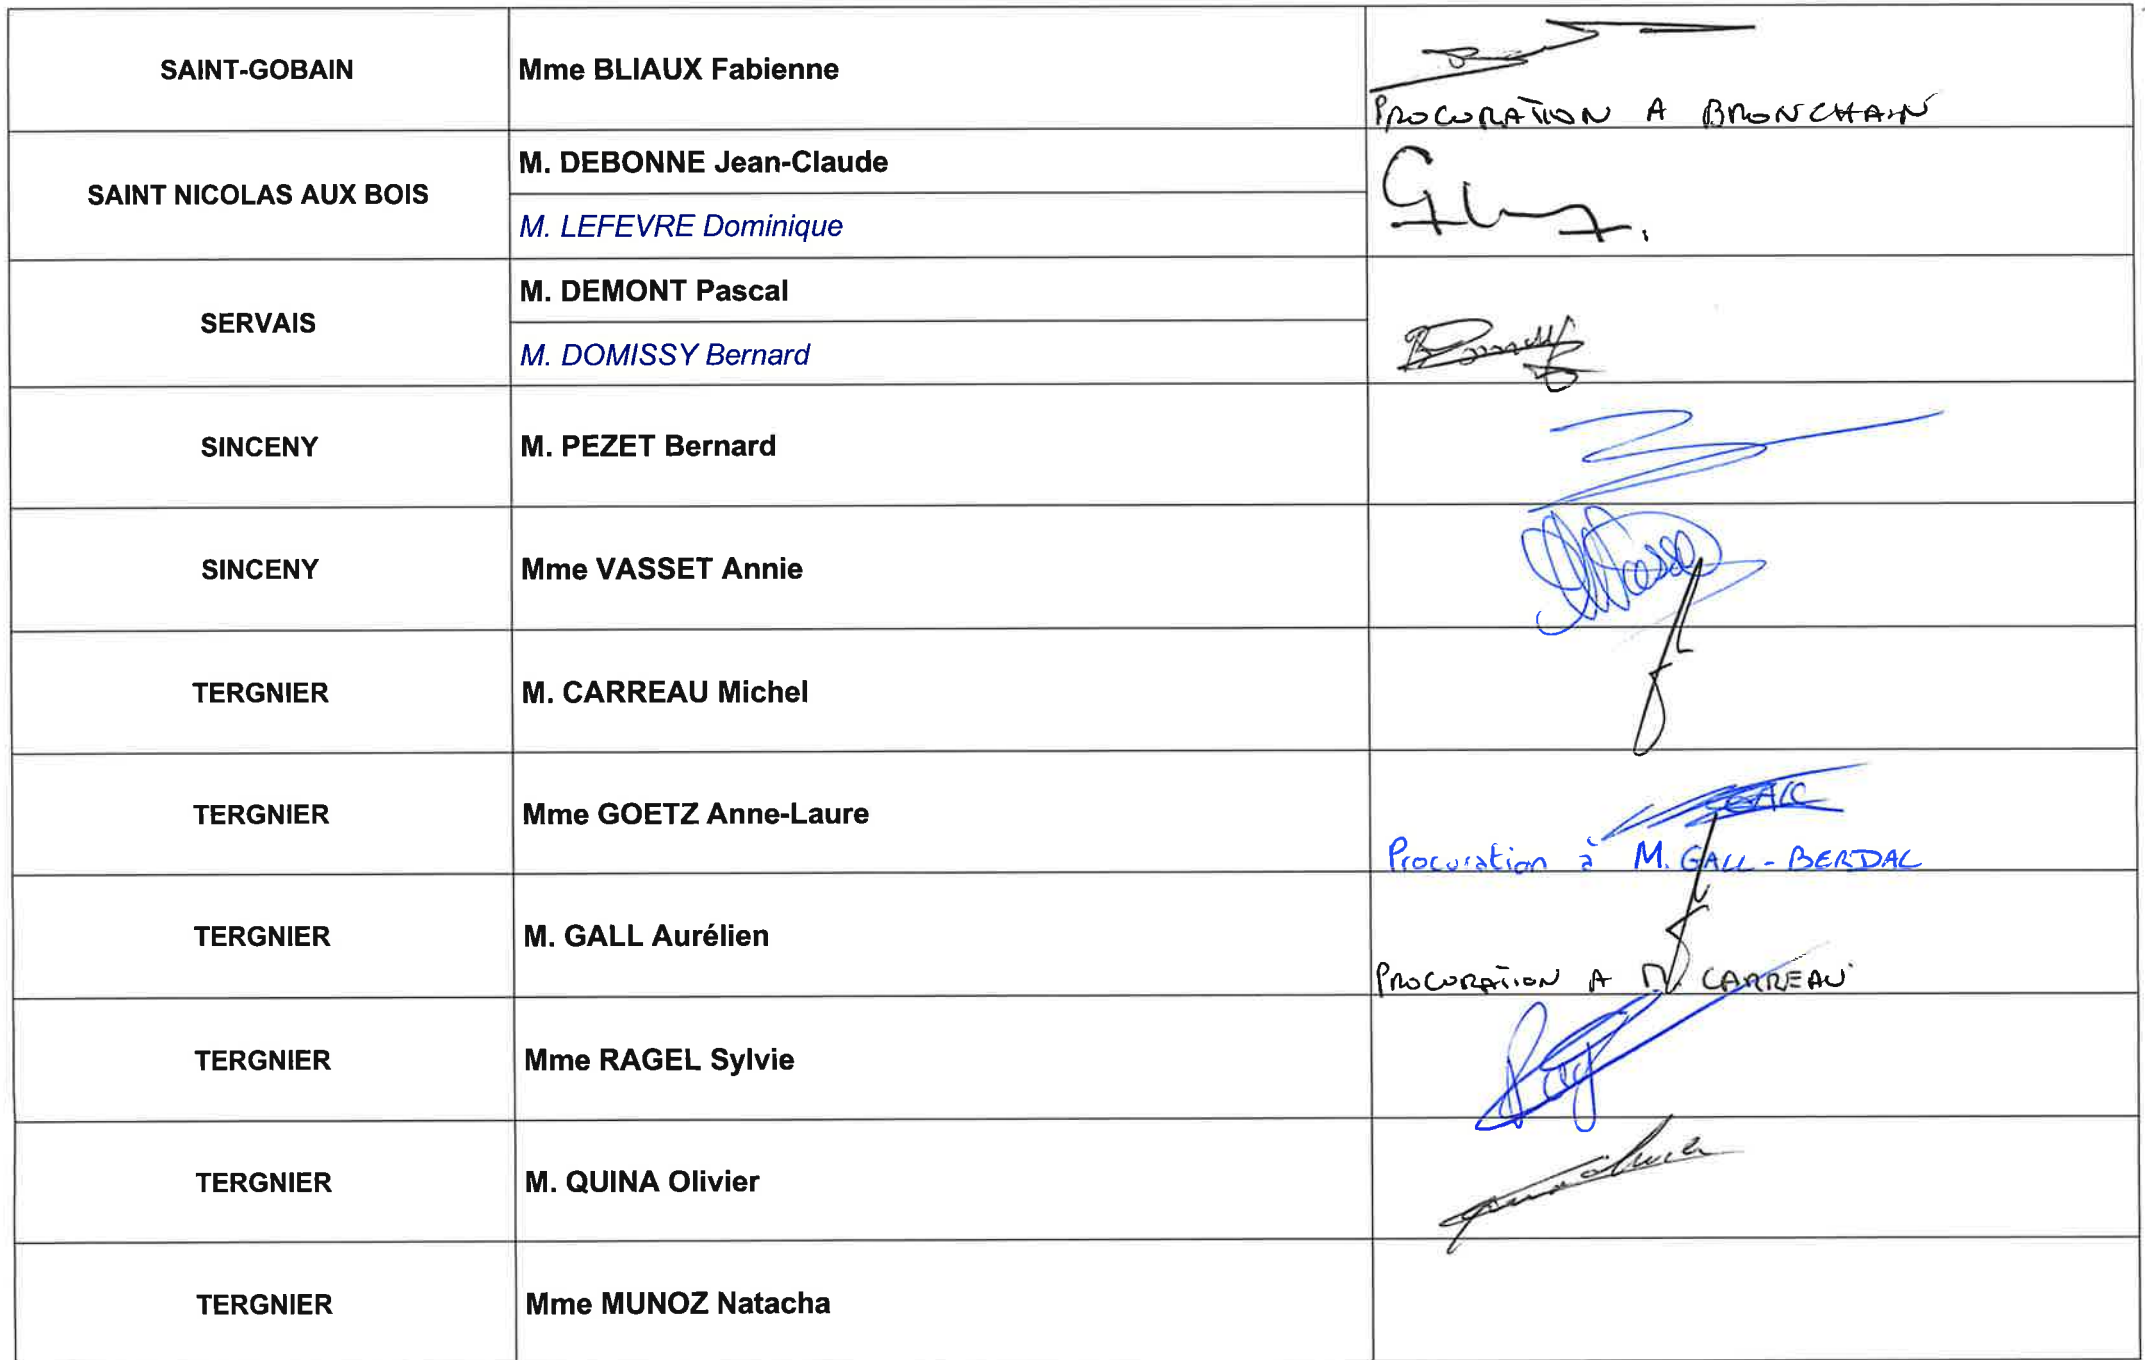 SAINT-GOBAIN
Mme BLIAUX Fabienne
PROCURATION A BRONCHAIN
SAINT NICOLAS AUX BOIS
M. DEBONNE Jean-Claude
M. LEFEVRE Dominique
SERVAIS
M. DEMONT Pascal
M. DOMISSY Bernard
SINCENY
M. PEZET Bernard
SINCENY
Mme VASSET Annie
TERGNIER
M. CARREAU Michel
TERGNIER
Mme GOETZ Anne-Laure
Procuration à M. GALL-BERDAL
TERGNIER
M. GALL Aurélien
PROCURATION A M. CARREAU
TERGNIER
Mme RAGEL Sylvie
TERGNIER
M. QUINA Olivier
TERGNIER
Mme MUNOZ Natacha